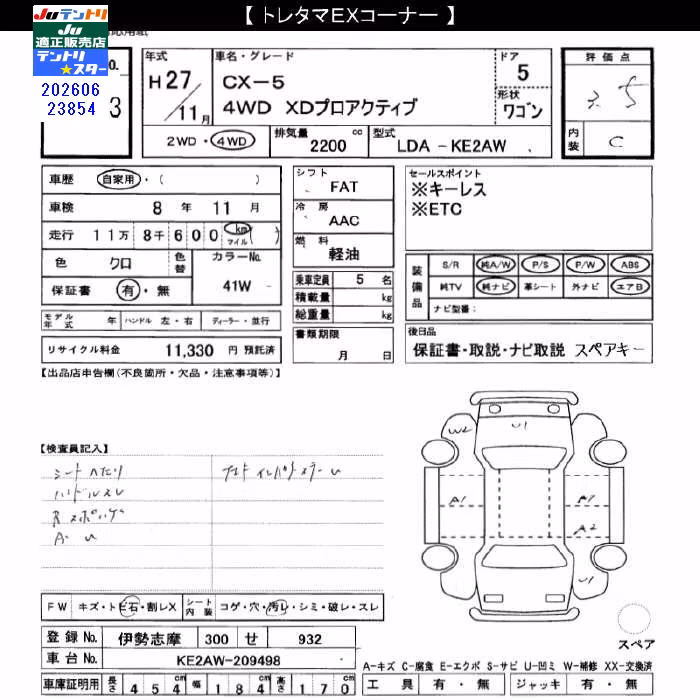 【 トレタマEXコーナー 】
JUテントリ
JU
適正販売店
テントリ
★スター
202606
23854
No.
3
年式
H27/11月
車名・グレード
CX-5
4WD XDプロアクティブ
ドア
5
形状
ワゴン
2WD・4WD
排気量 2200 cc
型式 LDA-KE2AW
評価点
3.5
内装 C
車歴 自家用・( )
車検 8年 11月
走行 11万 8千 600 km マイル ( )
色 クロ 色替
カラーNo. 41W
保証書 有・無
モデル年式 年 ハンドル 左・右 ディーラー・並行
リサイクル料金 11,330 円 預託済
シフト FAT
冷房 AAC
燃料 軽油
乗車定員 5 名
積載量 kg
総重量 kg
書類期限
月 日
セールスポイント
※キーレス
※ETC
装備品
S/R 純A/W P/S P/W ABS
純TV 純ナビ 革シート 外ナビ エアB
ナビ型番:
後日品
保証書・取説・ナビ取説 スペアキー
【出品店申告欄(不良箇所・欠品・注意事項等)】
【検査員記入】
シートヘたり
ハンドルスレ
A・U
W2
U1
A1
A1
A2
U1
スペア
FW キズ・トビ石・割レX
シート内装 コゲ・穴・汚レ・シミ・破レ・スレ
登録No. 伊勢志摩 300 せ 932
車台No. KE2AW-209498
車庫証明用 長さ 454cm 幅 184cm 高さ 170cm
A-キズ C-腐食 E-エクボ S-サビ U-凹ミ W-補修 XX-交換済
工具 有・無 ジャッキ 有・無